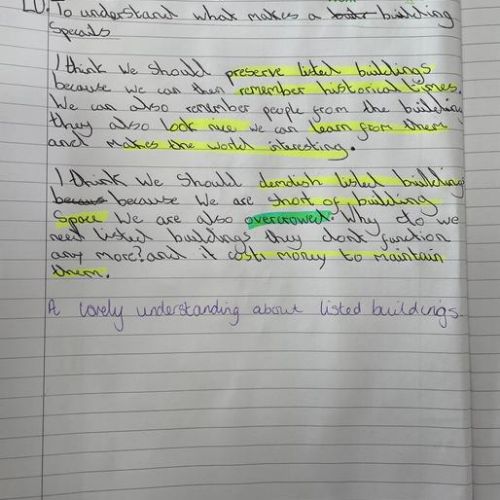 LO: To understand what makes a building
Specails
I think we should preserve listed buildings
because we can then remember historical times.
We can also remember people from the building
they also look nice we can learn from them
and makes the world interesting.
I think we should demolish listed buildings
because because we are short of building
space we are also overcrowed. Why do we
need listed buildings they dont function
any more? and it costs money to maintain
them.
A lovely understanding about listed buildings.